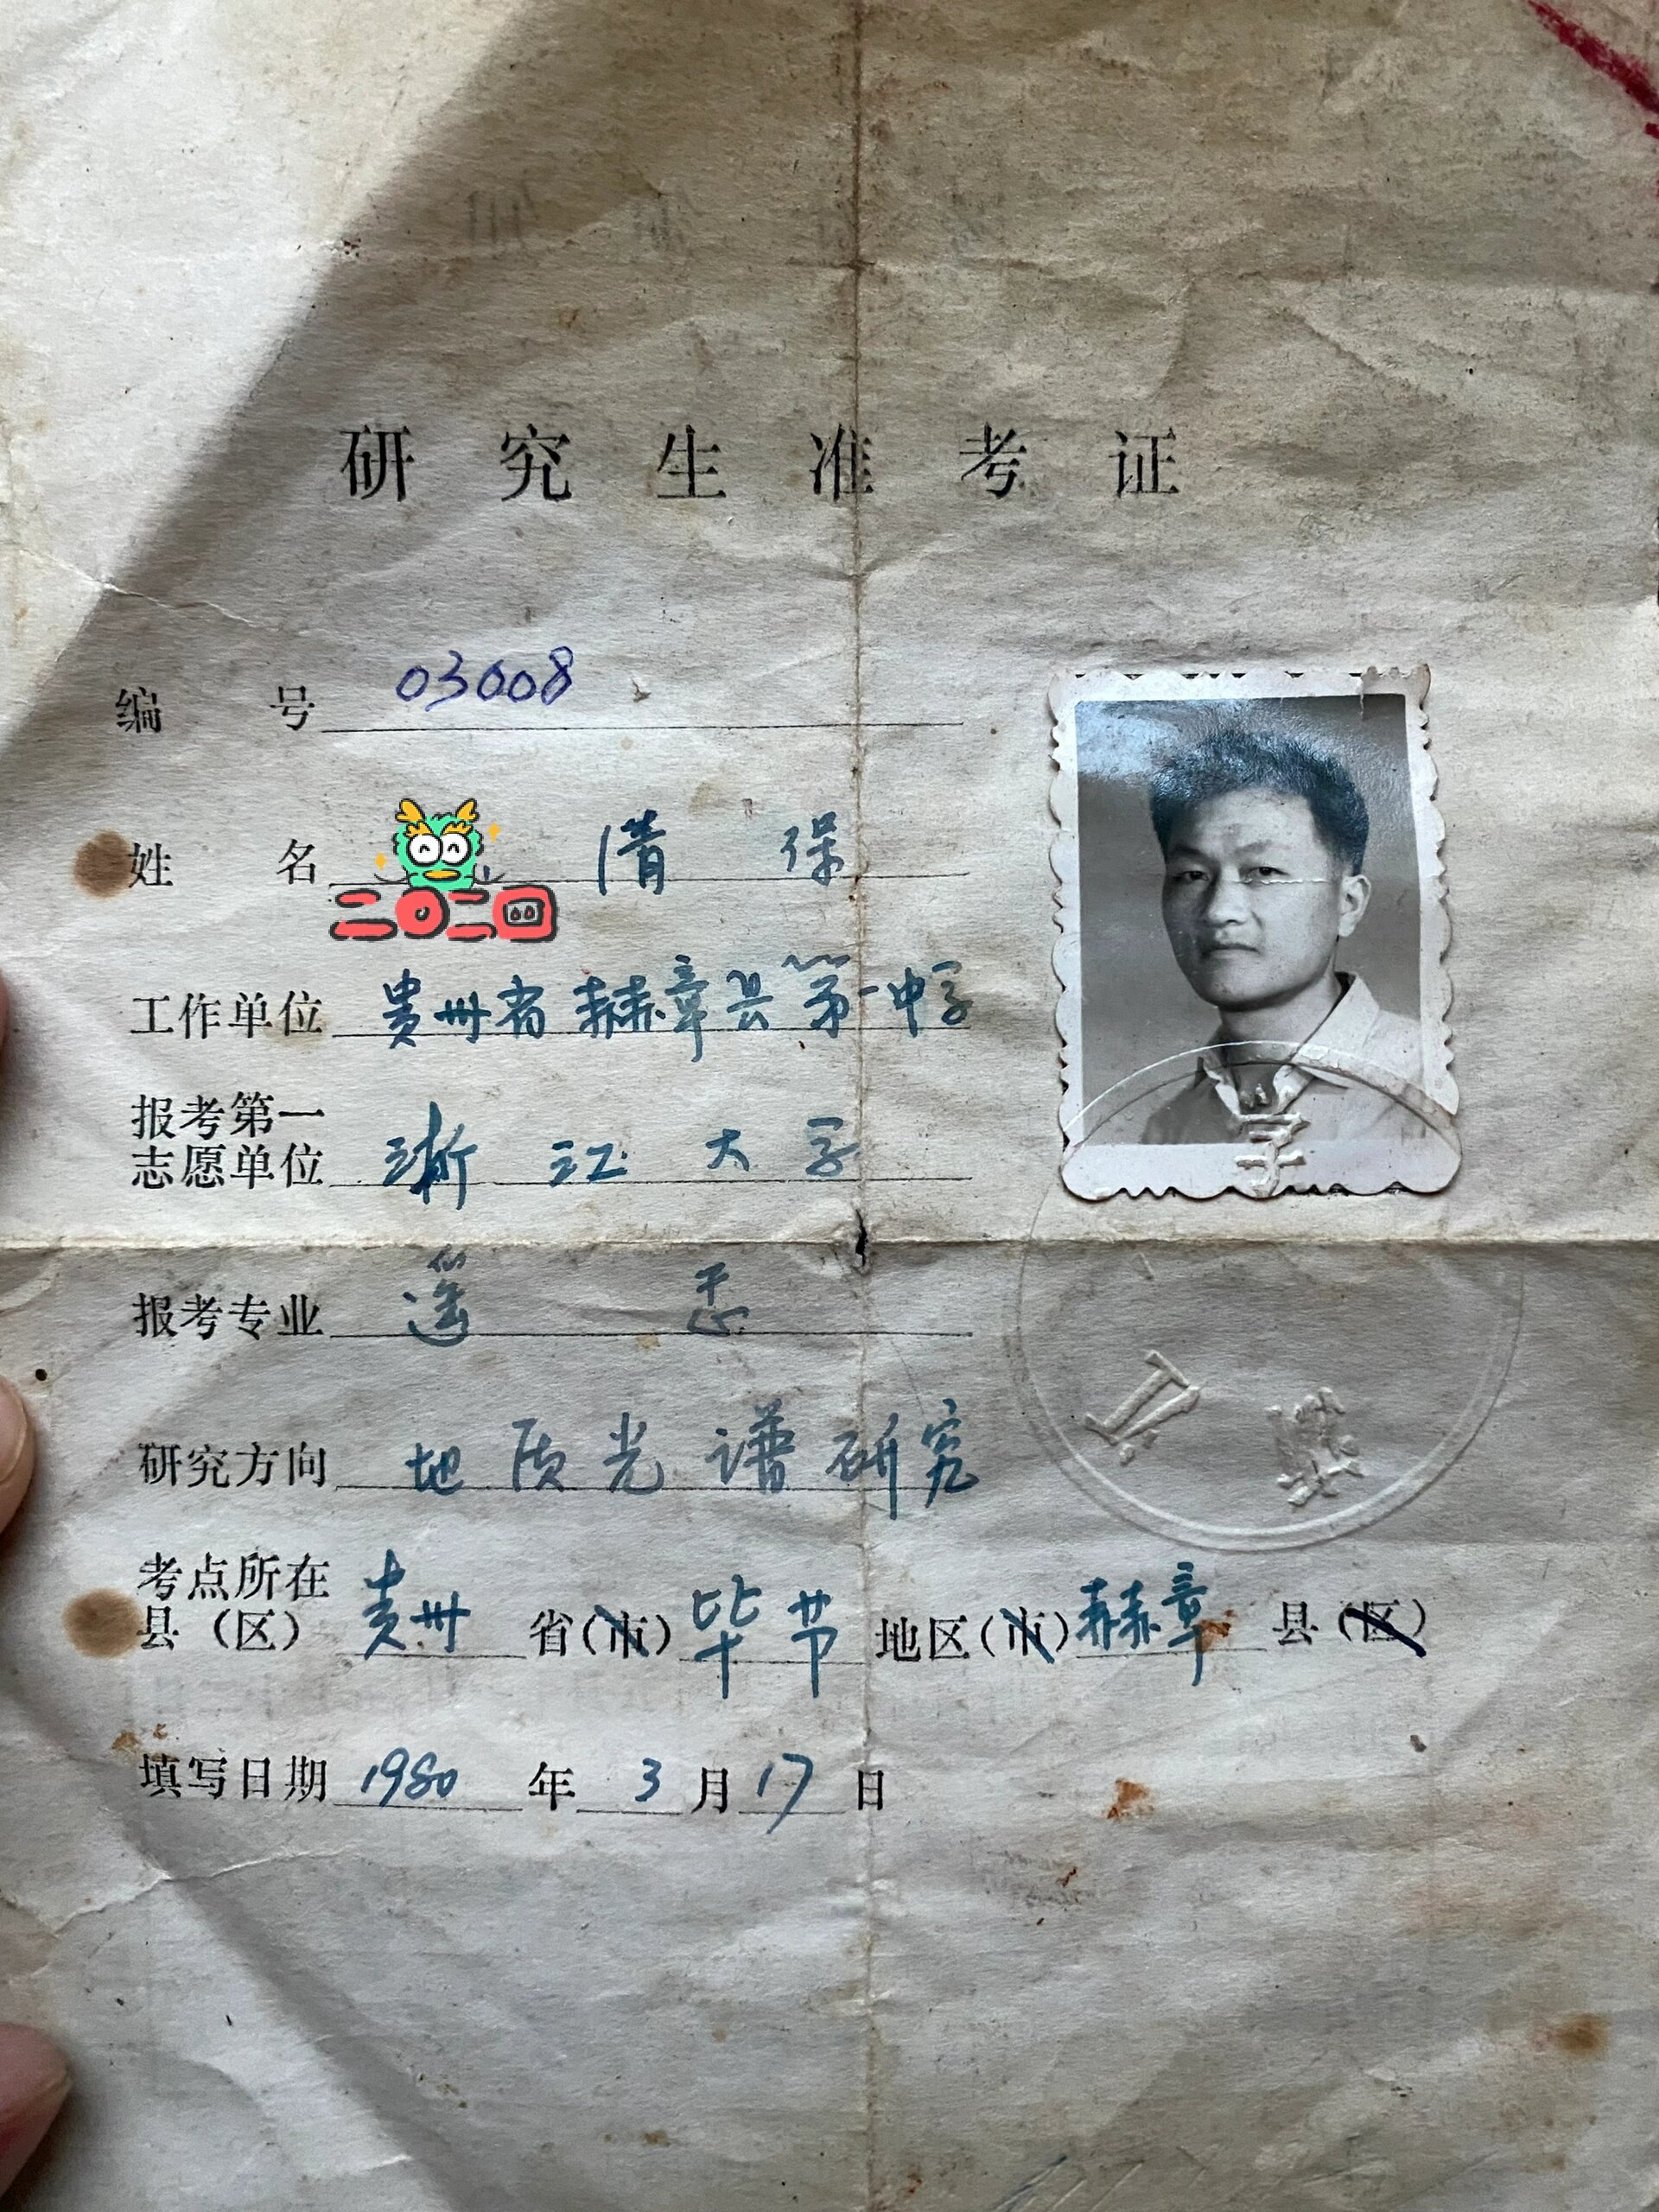 研究生准考证
编号 03008
姓名 清保
二〇二四
工作单位 贵州省赫章县第一中学
报考第一
志愿单位 浙江大学
报考专业 遥感
研究方向 地质光谱研究
考点所在
县（区） 贵州省（市）毕节地区（市）赫章县（区）
填写日期 1980年3月17日